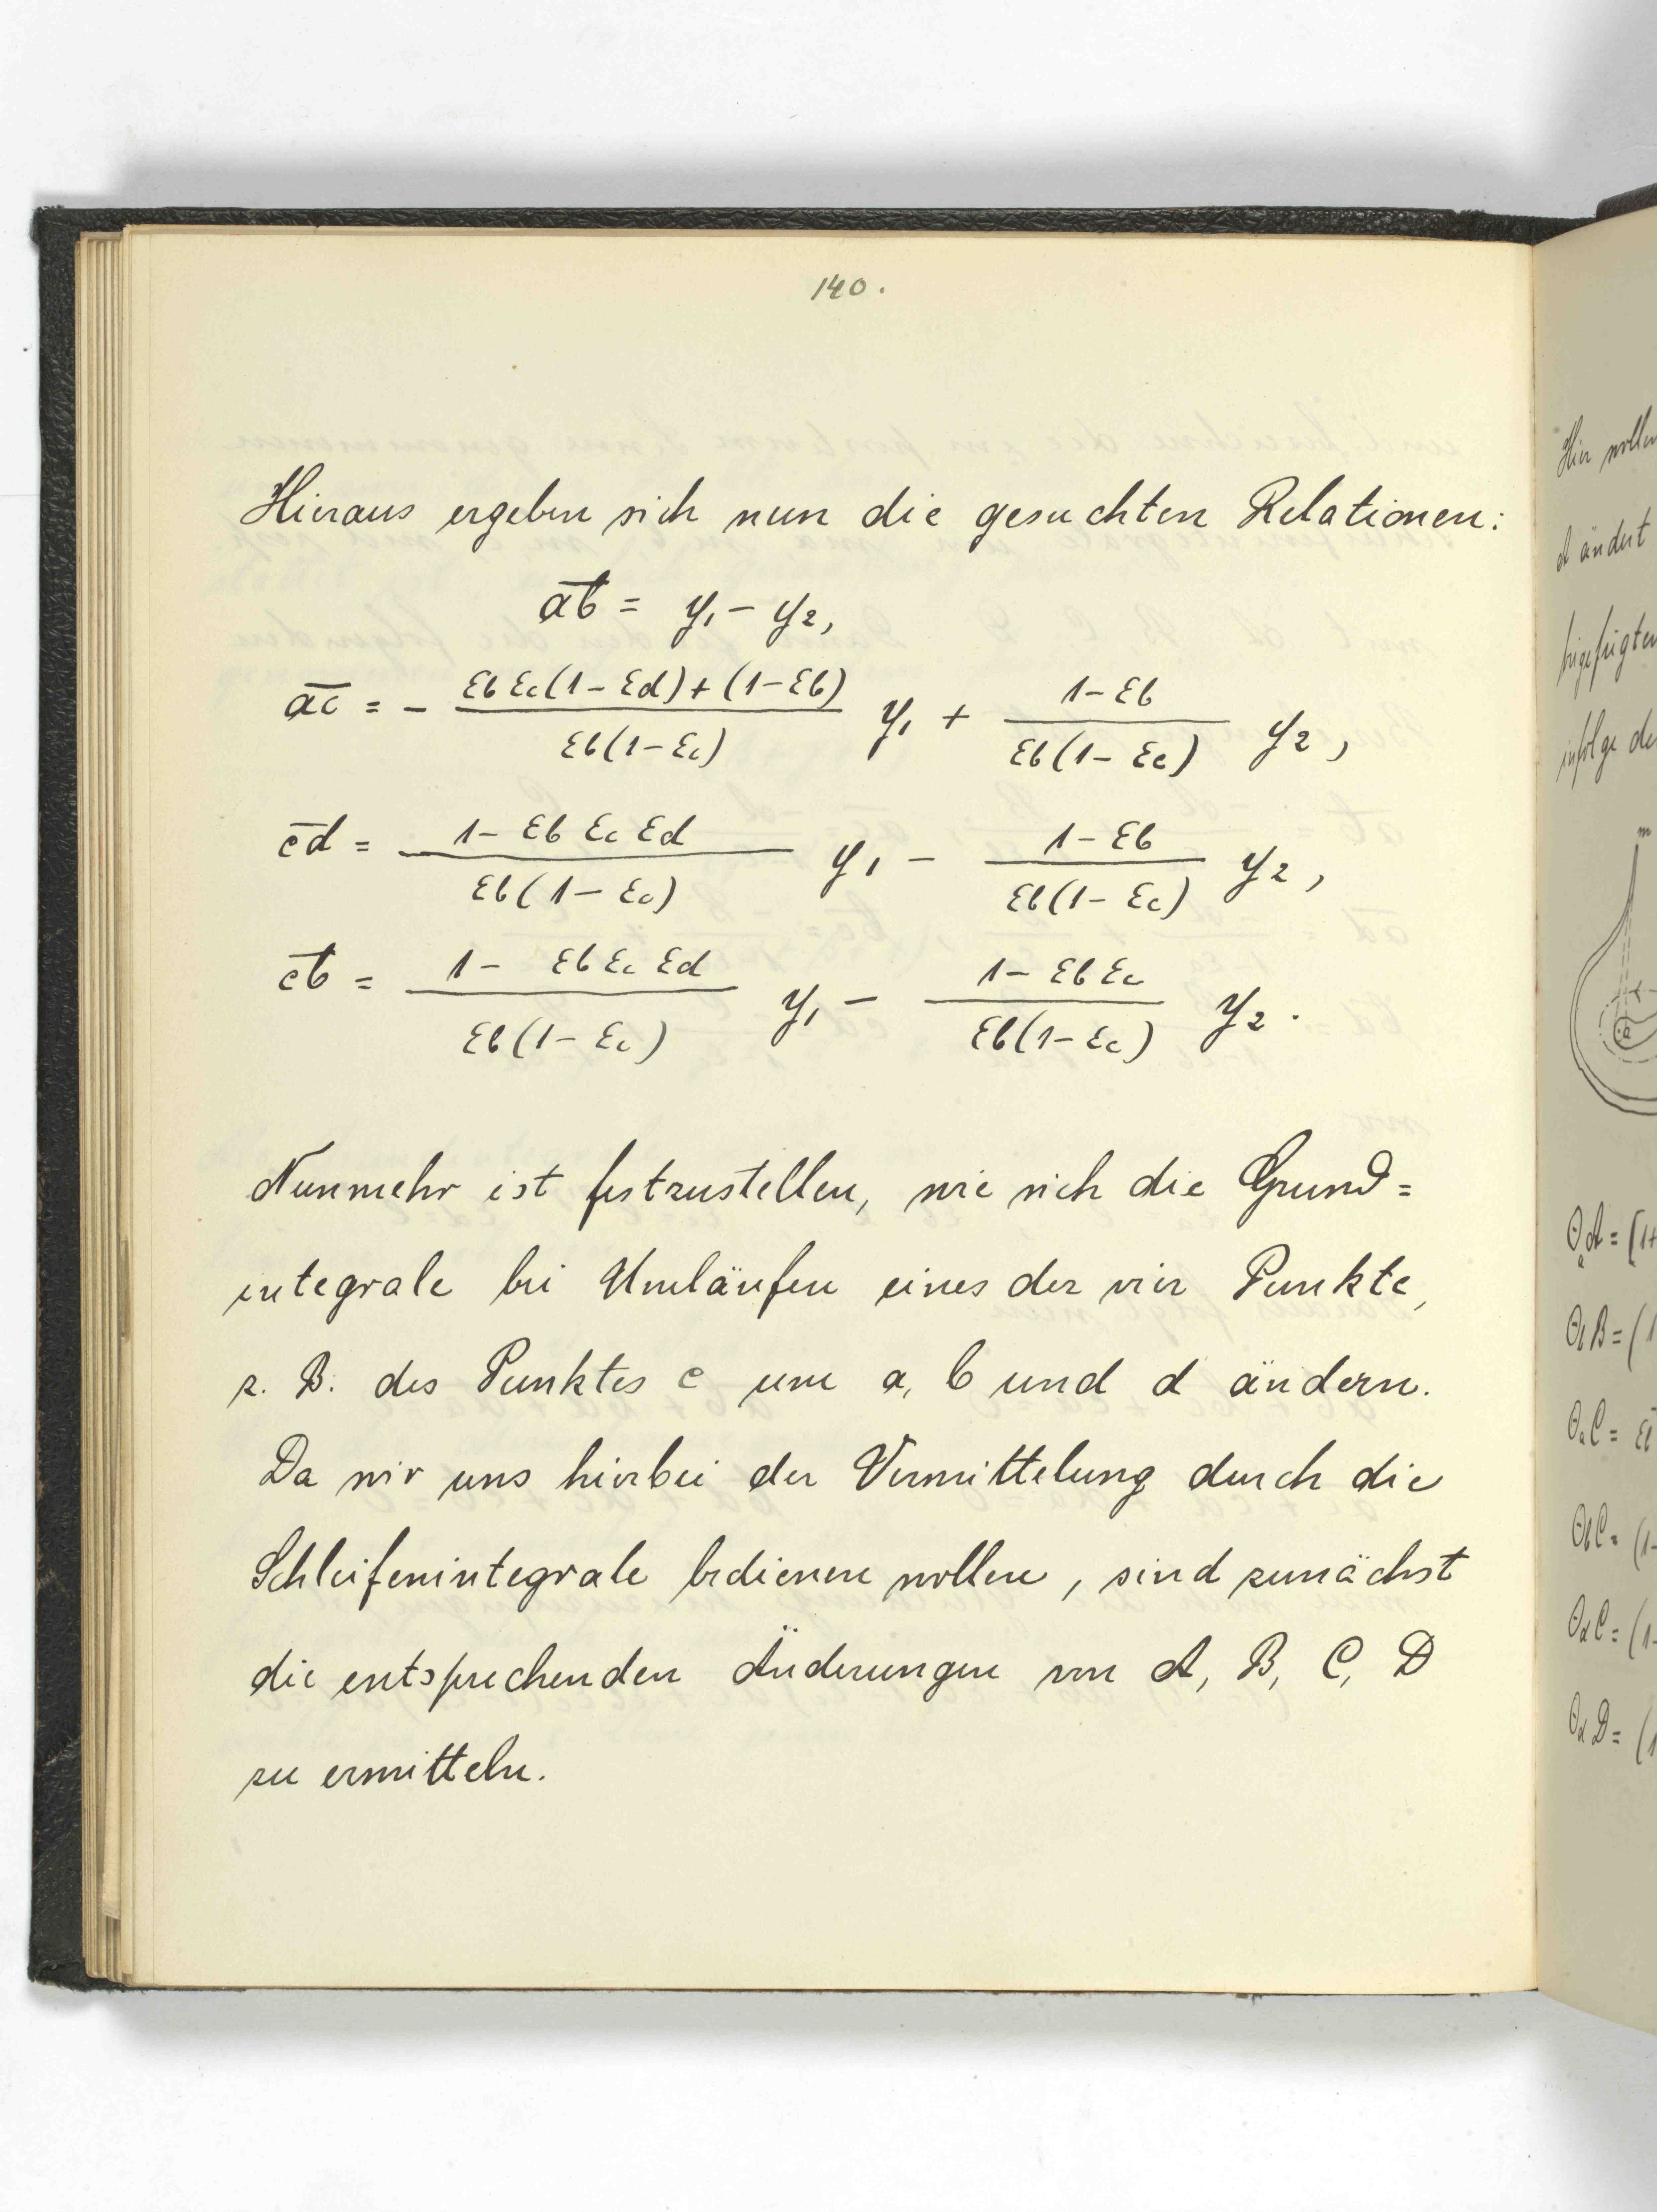 140.
Hieraus ergeben sich nun die gesuchten Relationen:
a̅b̅ = y₁ – y₂,
a̅c̅ = – (εb εc(1 – εd) + (1 – εb)) / (εb(1 – εc)) y₁ + (1 – εb) / (εb(1 – εc)) y₂,
c̅d̅ = (1 – εb εc εd) / (εb(1 – εc)) y₁ – (1 – εb) / (εb(1 – εc)) y₂,
c̅b̅ = (1 – εb εc εd) / (εb(1 – εc)) y₁ – (1 – εb εc) / (εb(1 – εc)) y₂.
Nunmehr ist festzustellen, wie sich die Grund=
integrale bei Umläufen eines der vier Punkte,
z. B. des Punktes c um a, b und d ändern.
Da wir uns hierbei der Vermittelung durch die
Schleifenintegrale bedienen wollen, sind zunächst
die entsprechenden Änderungen von A, B, C, D
zu ermitteln.
Hier
A ändert
infolge
m
a
ΘaA = (1+
ΘbB = (1
ΘaC =
ΘbC = (1-
ΘdC = (1-
ΘdD = (1